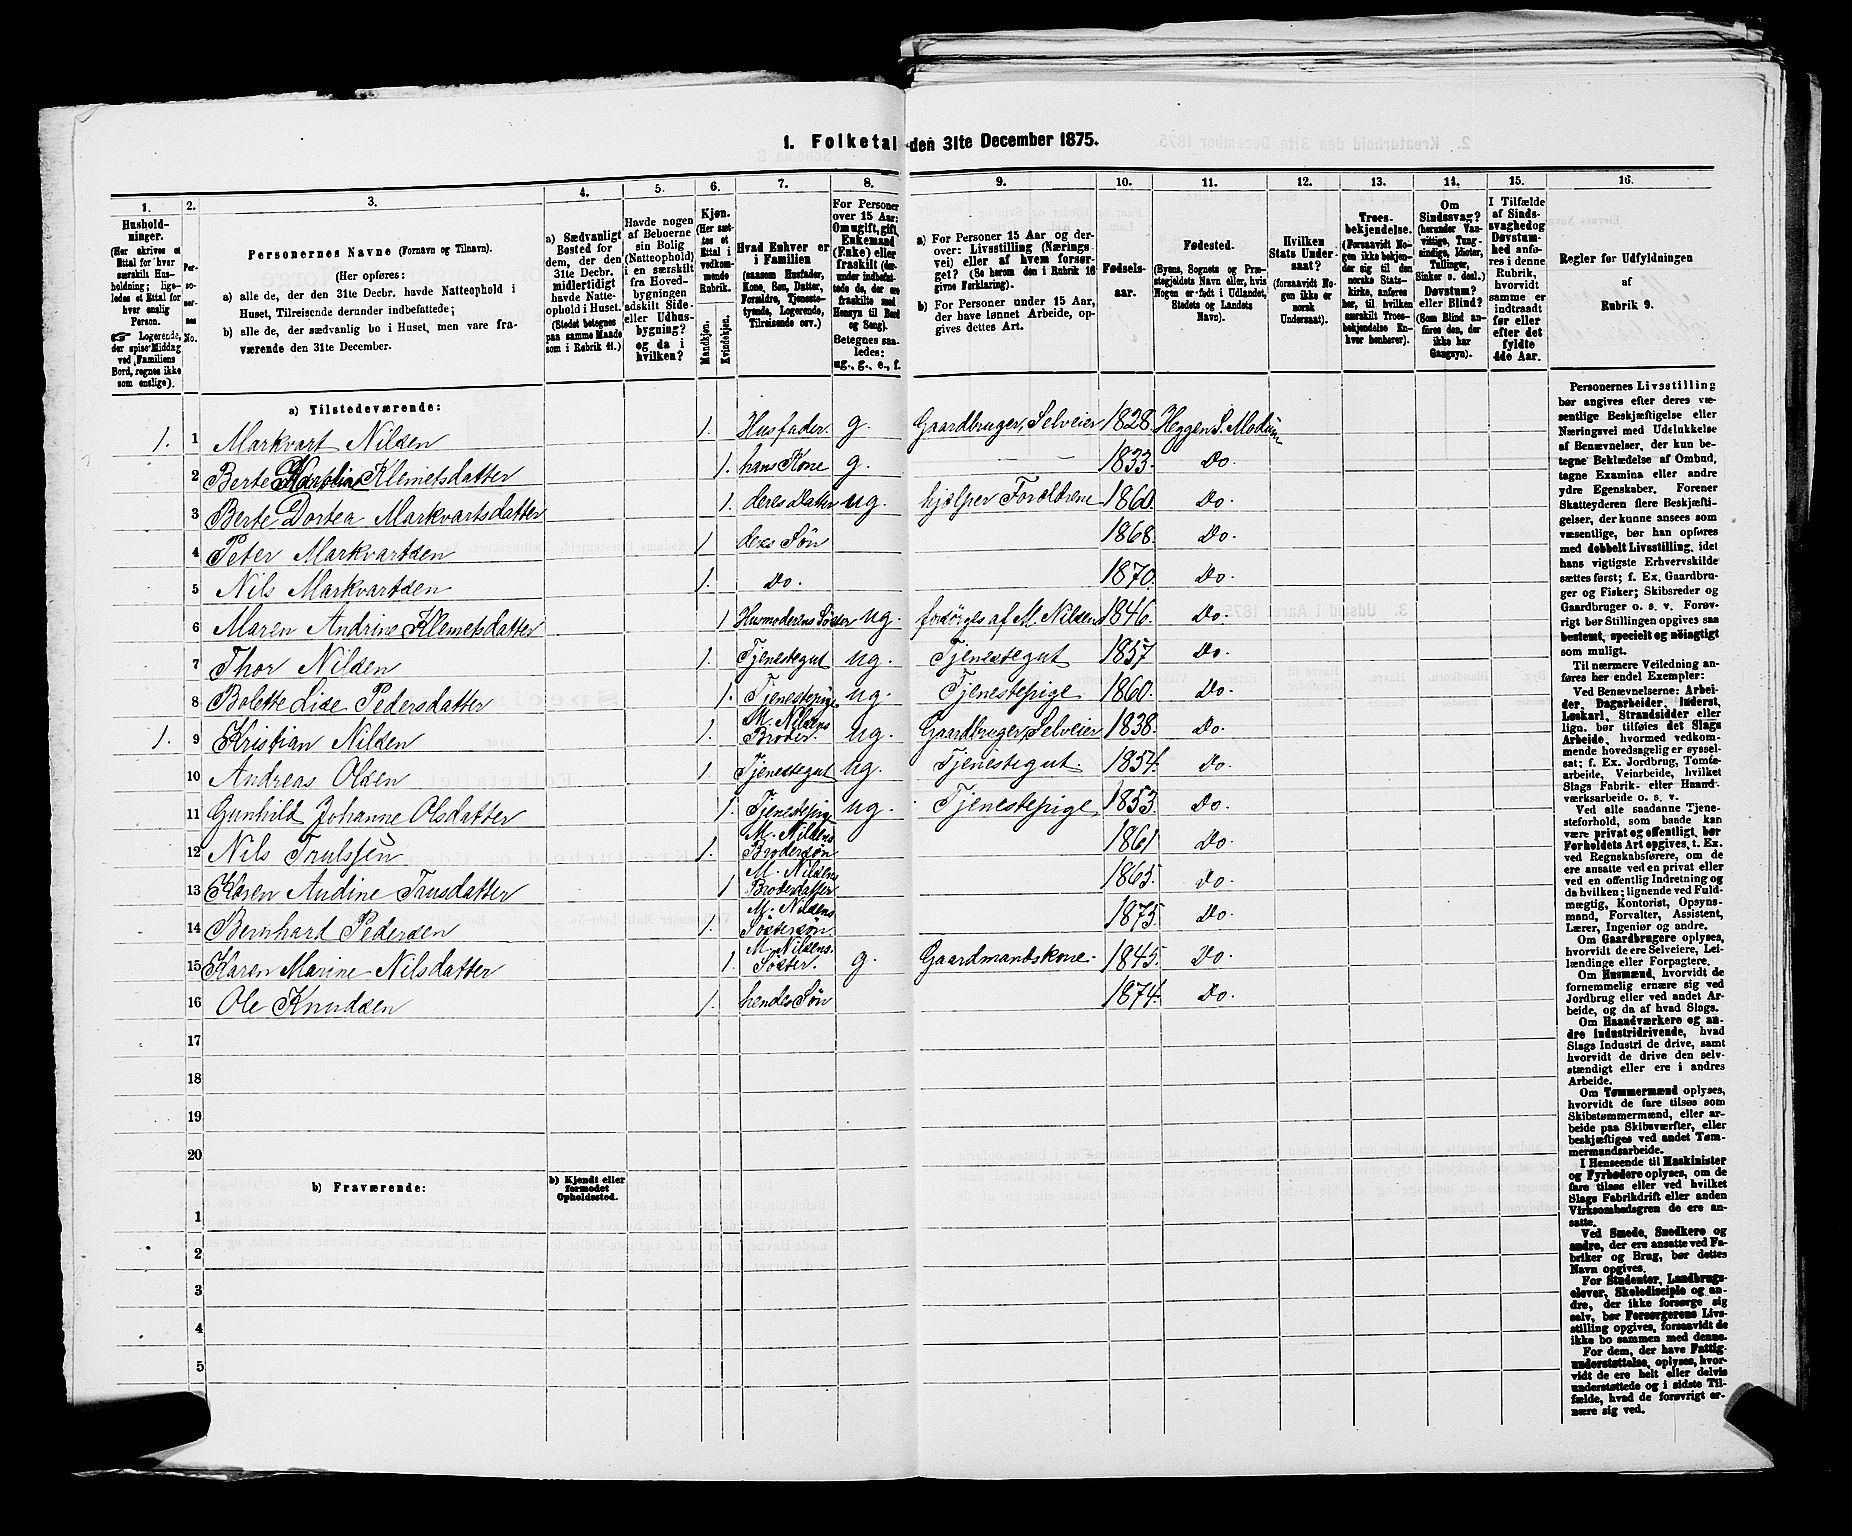 1. Folketal den 31te December 1875.
1. 2. 3. 4. 5. 6. 7. 8. 9. 10. 11. 12. 13. 14. 15. 16.
Hushold-
ninger.
(Her skrives et
Ettal for hver
særskilt Hus-
holdning; lige-
ledes et Ettal for
hver enslig
Person.
Logerende,
der spise Middag
ved Familiens
Bord, regnes ikke
som enslige).
Per-
so-
ner-
nes
No.
Personernes Navne (Fornavn og Tilnavn).
(Her opføres:
a) alle de, der den 31te Decbr. havde Natteophold i
Huset, Tilreisende derunder indbefattede;
b) alle de, der sædvanlig bo i Huset, men vare fra-
værende den 31te December.
a) Sædvanligt
Bosted for
dem, der den
31te Decbr.
midlertidigt
havde Natte-
ophold i Huset.
(Stedet betegnes
paa samme Maade
som i Rubrik 11.)
Havde nogen
af Beboerne
sin Bolig
(Natteophold)
i en særskilt
fra Hoved-
bygningen
adskilt Side-
eller Udhus-
bygning?
og da i
hvilken?
Kjøn.
(Her sæt-
tes et
Ettal i
vedkom-
mende
Rubrik.
Mandkjøn.
Kvindekjøn.
Hvad Enhver er
i Familien
(saasom Husfader,
Kone, Søn, Datter,
Forældre, Tjeneste-
tyende, Logerende,
Tilreisende osv.)
For Personer
over 15 Aar:
Om ugift, gift,
Enkemand
(Enke) eller
fraskilt (der-
under indbefat-
tede de, der ere
fraskilte med
Hensyn til Bord
og Seng).
Betegnes saa-
ledes:
ug., g., e., f.
a) For Personer 15 Aar og der-
over: Livsstilling (Nærings-
vei) eller af hvem forsør-
get? (Se herom den i Rubrik 16
givne Forklaring).
b) For Personer under 15 Aar,
der have lønnet Arbeide, op-
gives dettes Art.
Fødsels-
aar.
Fødested.
(Byens, Sognets og Præ-
stegjeldets Navn eller, hvis
Nogen er født i Udlandet,
Stedets og Landets
Navn).
Hvilken
Stats Under-
saat?
(forsaavidt No-
gen ikke er
norsk
Undersaat).
Troes-
bekjendelse.
(Forsaavidt No-
gen ikke bekjen-
der sig til den
norske Stats-
kirke, anføres
her, til hvilken
særskilt Troes-
bekjendelse En-
hver henhører).
Om
Sindssvag?
(herunder Van-
vittige, Tung-
sindige, Idioter,
Tullinger,
Sinker o. desl.)
Døvstum?
eller Blind?
(Som Blind an-
føres den, der
ikke har
Gangsyn).
I Tilfælde
af Sinds-
svaghed og
Døvstum-
hed anfø-
res i denne
Rubrik,
hvorvidt
samme er
indtraadt
før eller
efter det
fyldte
4de Aar.
Regler for Udfyldningen
af
Rubrik 9.
a) Tilstedeværende:
1. 1 Markvart Nilsen 1. Husfader. g. Gaardbruger, Selveier 1828. Heggen S. Modum
2 Berte Karoline Klemetsdatter 1. hans Kone g. – – 1833. Do.
3 Berte Dortea Markvartsdatter 1. deres Datter ug. hjælper Forældrene 1860. Do.
4 Peter Markvartsen 1. deres Søn 1868. Do.
5 Nils Markvartsen 1. Do. 1870. Do.
6 Maren Andrine Klemetsdatter 1 Husmoderens Søster ug. forsørges af M. Nilsen 1846. Do.
7 Thor Nilsen 1. Tjenestegut ug. Tjenestegut 1857 Do.
8 Bolette Lise Pedersdatter 1. Tjenestepige ug. Tjenestepige 1860. Do.
1. 9 Kristian Nilsen 1. M. Nilsens Broder. ug. Gaardbruger, Selveier 1838. Do.
10 Andreas Olsen 1. Tjenestegut ug. Tjenestegut. 1854. Do.
11 Gunhild Johanne Olsdatter 1. Tjenestepige ug. Tjenestepige 1853. Do.
12 Nils Trulssen 1. M. Nilsens Brodersøn 1861 Do.
13 Karen Andine Trusdatter 1 M. Nilsens Broderdatter 1865. Do.
14 Bernhard Pedersen 1. M. Nilsens Søstersøn 1875. Do.
15 Karen Marine Nilsdatter 1. M. Nilsens Søster. g. Gaardmandskone. 1845. Do.
16 Ole Knudsen 1. hendes Søn 1874. Do.
17
18
19
20
b) Fraværende:
b) Kjendt eller
formodet
Opholdssted.
1
2
3
4
5
Personernes Livsstilling
bør angives efter deres væ-
sentlige Beskjæftigelse eller
Næringsvei med Udelukkelse
af Benævnelser, der kun be-
tegne Beklædelse af Ombud,
tagne Examina eller andre
ydre Egenskaber. Forener
Skatteyderen flere Beskjæfti-
gelser, der kunne ansees som
væsentlige, bør han opføres
med dobbelt Livsstilling, idet
hans vigtigste Erhvervskilde
sættes først; f. Ex. Gaardbru-
ger og Fisker; Skibsreder og
Gaardbruger o. s. v. Forøv-
rigt bør Stillingen opgives saa
bestemt, specielt og nøiagtigt
som muligt.
Til nærmere Veiledning an-
føres her endel Exempler:
Ved Benævnelserne: Arbei-
der, Dagarbeider, Inderst,
Løskarl, Strandsidder eller
lign. bør tilføies det Slags
Arbeide, hvormed vedkom-
mende hovedsagelig er syssel-
sat; f. Ex. Jordbrug, Tomte-
arbeide, Veiarbeide, hvilket
Slags Fabrik- eller Haand-
værksarbeide o. s. v.
Ved alle saadanne Tjene-
steforhold, som baade kan
være privat og offentligt, bør
Forholdets Art opgives, t. Ex.
ved Regnskabsførere, om de
ere ansatte ved en privat eller
ved en offentlig Indretning og
da hvilken; lignende ved Fuld-
mægtig, Kontorist, Opsyns-
mand, Forvalter, Assistent,
Lærer, Ingeniør og andre.
Om Gaardbrugere oplyses,
hvorvidt de ere Selveiere, Lei-
lændinge eller Forpagtere.
Om Husmænd, hvorvidt de
fornemmelig ernære sig ved
Jordbrug eller ved andet Ar-
beide, og da af hvad Slags.
Om Haandværkere og an-
dre Industridrivende, hvad
Slags Industri de drive, samt
hvorvidt de drive den selv-
stændigt eller ere i andres
Arbeide.
Om Tømmermænd oplyses,
hvorvidt de fare tilsøs som
Skibstømmermænd, eller ar-
beide paa Skibsværfter, eller
beskjæftiges ved andet Tøm-
mermandsarbeide.
I Henseende til Maskinister
og Fyrbødere oplyses, om de
fare tilsøs eller ved hvilket
Slags Fabrikdrift eller anden
Virksomhedsgren de ere an-
satte.
Ved Smede, Snedkere og
andre, der ere ansatte ved Fa-
briker og Brug, bør dettes
Navn opgives.
For Studenter, Landbrugs-
elever, Skoledisciple og an-
dre, der ikke forsørge sig
selv, bør Forsørgerens Livs-
stilling opgives, forsaavidt de
ikke bo sammen med denne.
For dem, der have Fattig-
understøttelse, oplyses, hvor-
vidt de ere helt eller delvis
understøttede og i sidste Til-
fælde, hvad de forøvrigt er-
nære sig ved.